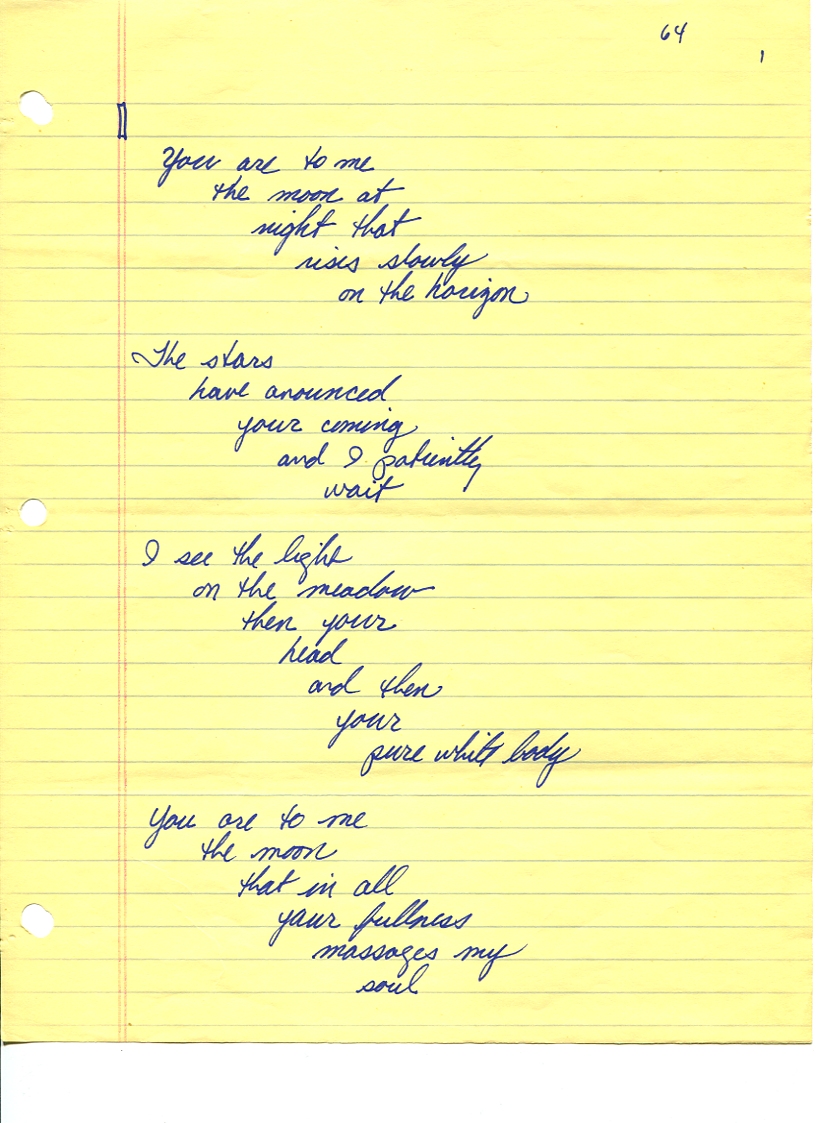 64
1
You are to me
the moon at
night that
rises slowly
on the horizon
The stars
have anounced
your coming
and I patiently
wait
I see the light
on the meadow
then your
head
and then
your
pure white body
You are to me
the moon
that in all
your fullness
massages my
soul